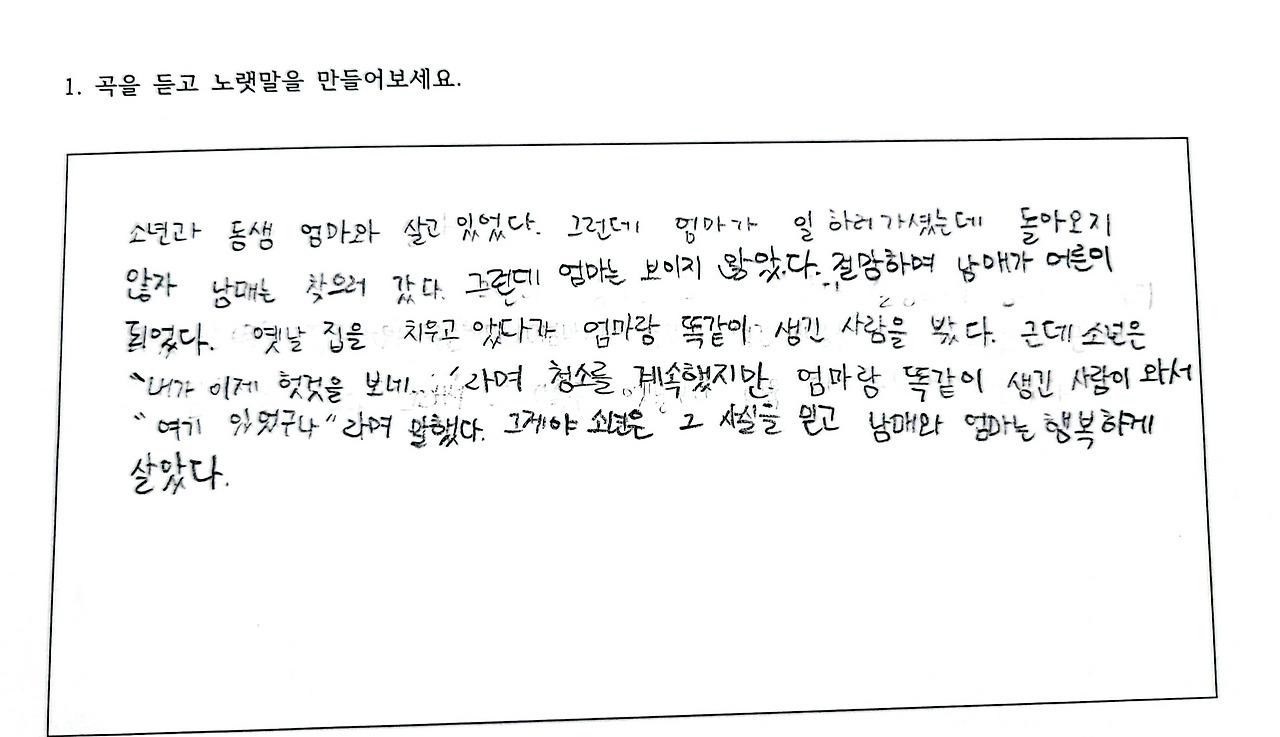 1. 곡을 듣고 노랫말을 만들어보세요.
소년과 동생 엄마와 살고 있었다. 그런데 엄마가 일 하러가셨는데 돌아오지
않자 남매는 찾으러 갔다. 그런데 엄마는 보이지 않았다. 절망하며 남매가 어른이
되었다. 옛날 집을 치우고 있다가 엄마랑 똑같이 생긴 사람을 봤다. 근데 소년은
"내가 이제 헛것을 보네..." 라며 청소를 계속했지만 엄마랑 똑같이 생긴 사람이 와서
"여기 있었구나" 라며 말했다. 그제야 소년은 그 사실을 믿고 남매와 엄마는 행복하게
살았다.